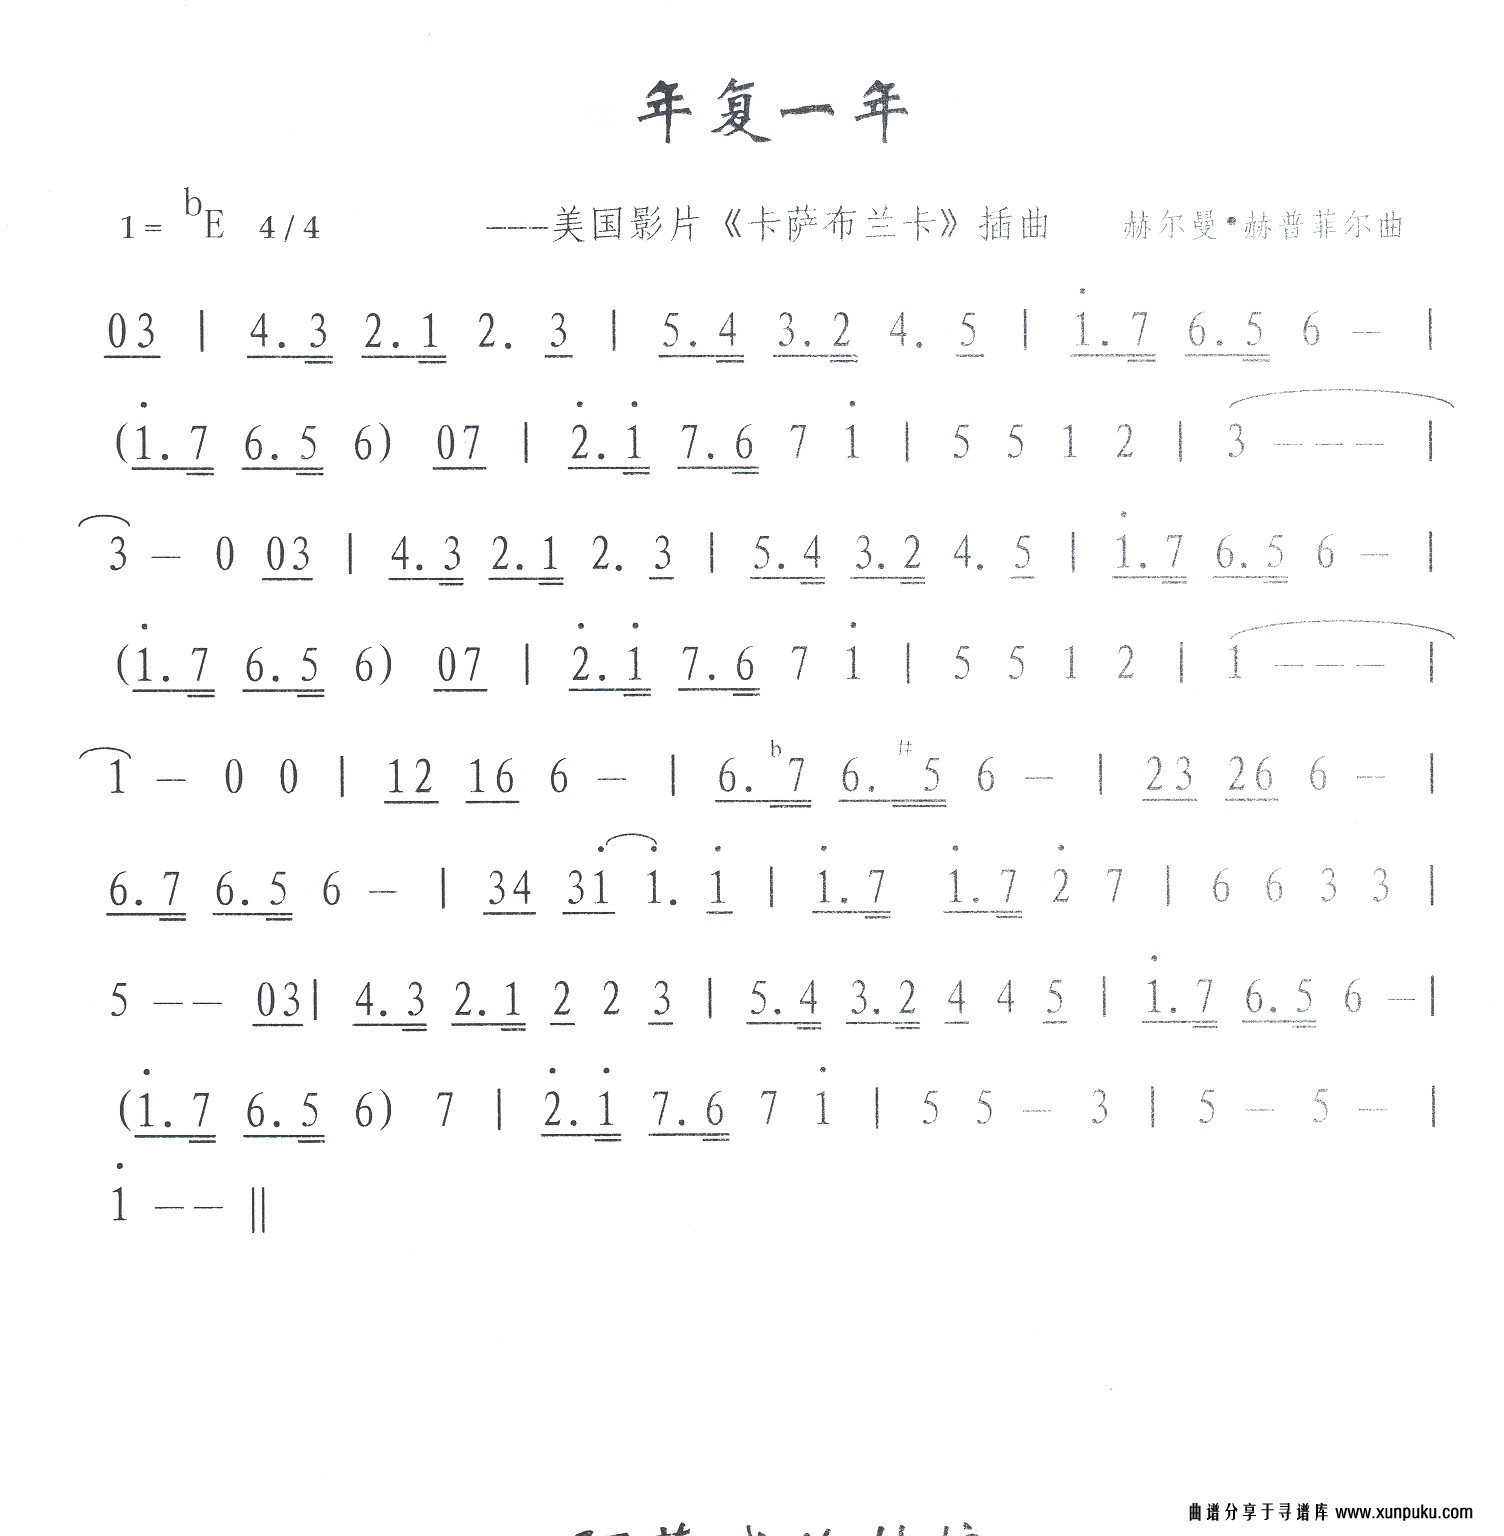 年复一年
1= bE 4/4 ---美国影片《卡萨布兰卡》插曲 赫尔曼•赫普菲尔曲
03 | 4.3 2.1 2. 3 | 5.4 3.2 4. 5 | 1.7 6.5 6 – |
(1.7 6.5 6) 07 | 2.1 7.6 7 1 | 5 5 1 2 | 3 – – – |
3 – 0 03 | 4.3 2.1 2. 3 | 5.4 3.2 4. 5 | 1.7 6.5 6 – |
(1.7 6.5 6) 07 | 2.1 7.6 7 1 | 5 5 1 2 | 1 – – – |
1 – 0 0 | 12 16 6 – | 6. b7 6. #5 6 – | 23 26 6 – |
6.7 6.5 6 – | 34 31 1. 1 | 1.7 1.7 2 7 | 6 6 3 3 |
5 – – 03 | 4.3 2.1 2 2 3 | 5.4 3.2 4 4 5 | 1.7 6.5 6 – |
(1.7 6.5 6) 7 | 2.1 7.6 7 1 | 5 5 – 3 | 5 – 5 – |
1 – – ||
曲谱分享于寻谱库 www.xunpuku.com